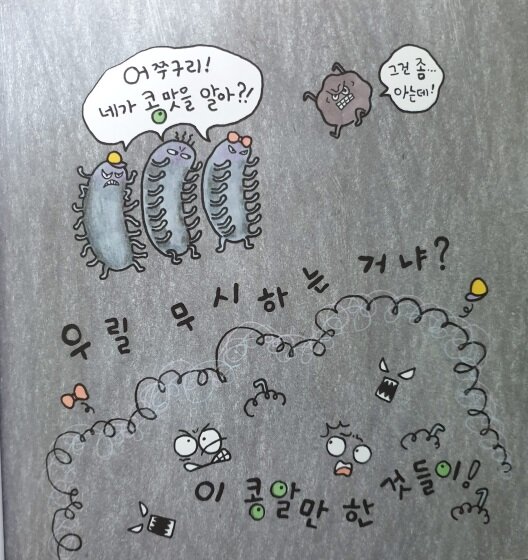 어쭈구리!
네가 콩 맛을 알아?!
그건 좀...
아는데!
우릴 무시하는 거냐?
이 콩알만 한 것들이!